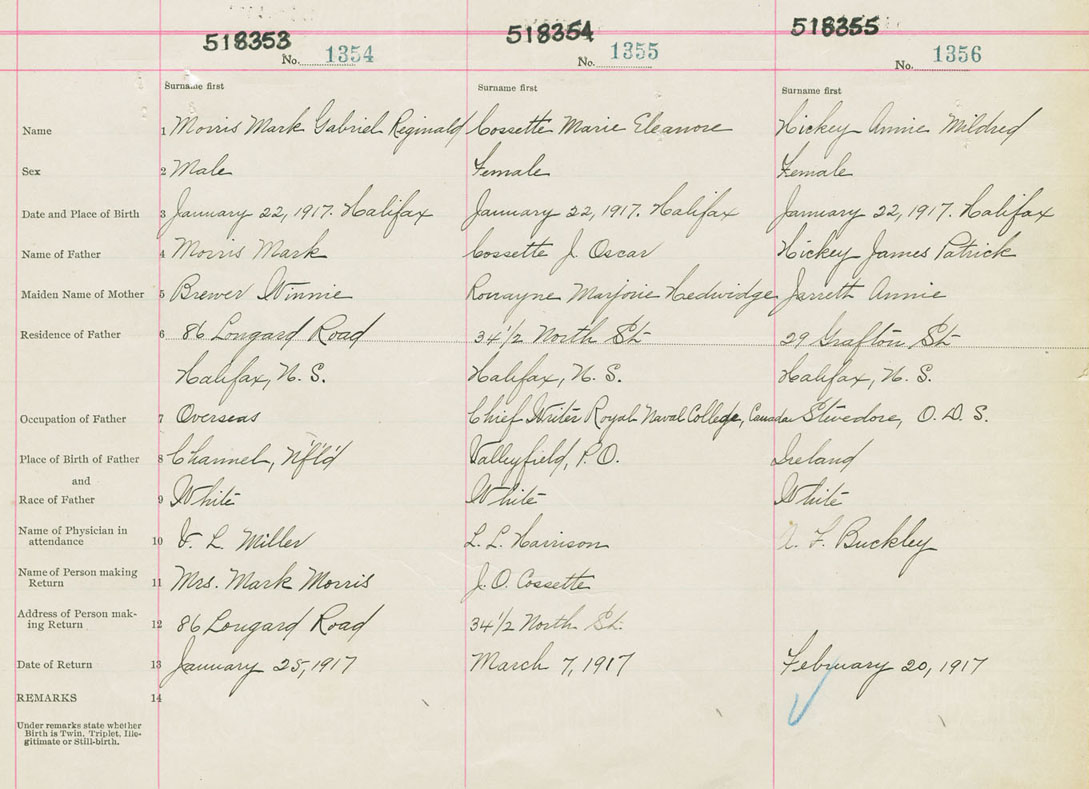 518353 518354 518355
No. 1354 No. 1355 No. 1356
Surname first Surname first Surname first
Name 1 Morris Mark Gabriel Reginald Cossette Marie Eleanore Hickey Annie Mildred
Sex 2 Male Female Female
Date and Place of Birth 3 January 22, 1917. Halifax January 22, 1917. Halifax January 22, 1917. Halifax
Name of Father 4 Morris Mark Cossette J. Oscar Hickey James Patrick
Maiden Name of Mother 5 Brewer Winnie Marjorie Hedwidge Jarrett Annie
Residence of Father 6 86 Longard Road 34 1/2 North St. 29 Grafton St.
Halifax, N. S. Halifax, N. S. Halifax, N. S.
Occupation of Father 7 Overseas Chief Writer Royal Naval College, Canada Stevedore, O. D. S.
Place of Birth of Father 8 Channel, Nfl'd Valleyfield, P.O. Ireland
and
Race of Father 9 White White White
Name of Physician in
attendance 10 V. L. Miller L. L. Harrison A. F. Buckley
Name of Person making
Return 11 Mrs. Mark Morris J. O. Cossette
Address of Person mak-
ing Return 12 86 Longard Road 34 1/2 North St.
Date of Return 13 January 25, 1917 March 7, 1917 February 20, 1917
REMARKS 14
Under remarks state whether
Birth is Twin, Triplet, Ille-
gitimate or Still-birth.